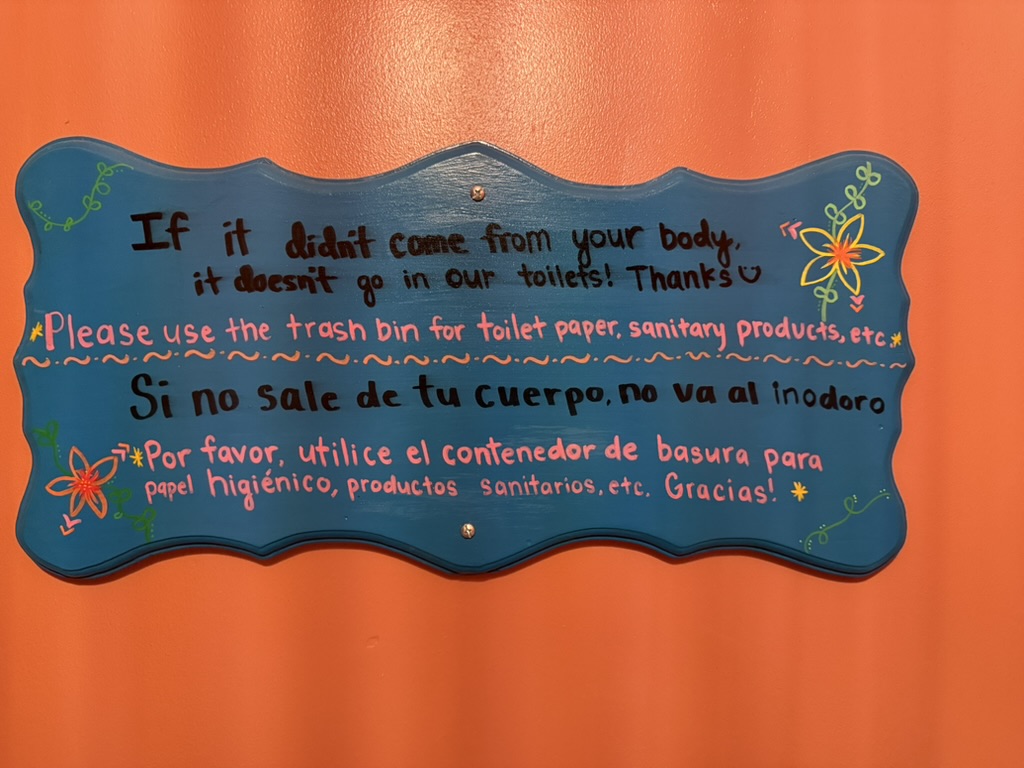 If it didn't come from your body,
it doesn't go in our toilets! Thanks
*Please use the trash bin for toilet paper, sanitary products, etc.*
Si no sale de tu cuerpo, no va al inodoro
*Por favor, utilice el contenedor de basura para
papel higiénico, productos sanitarios, etc. Gracias! *